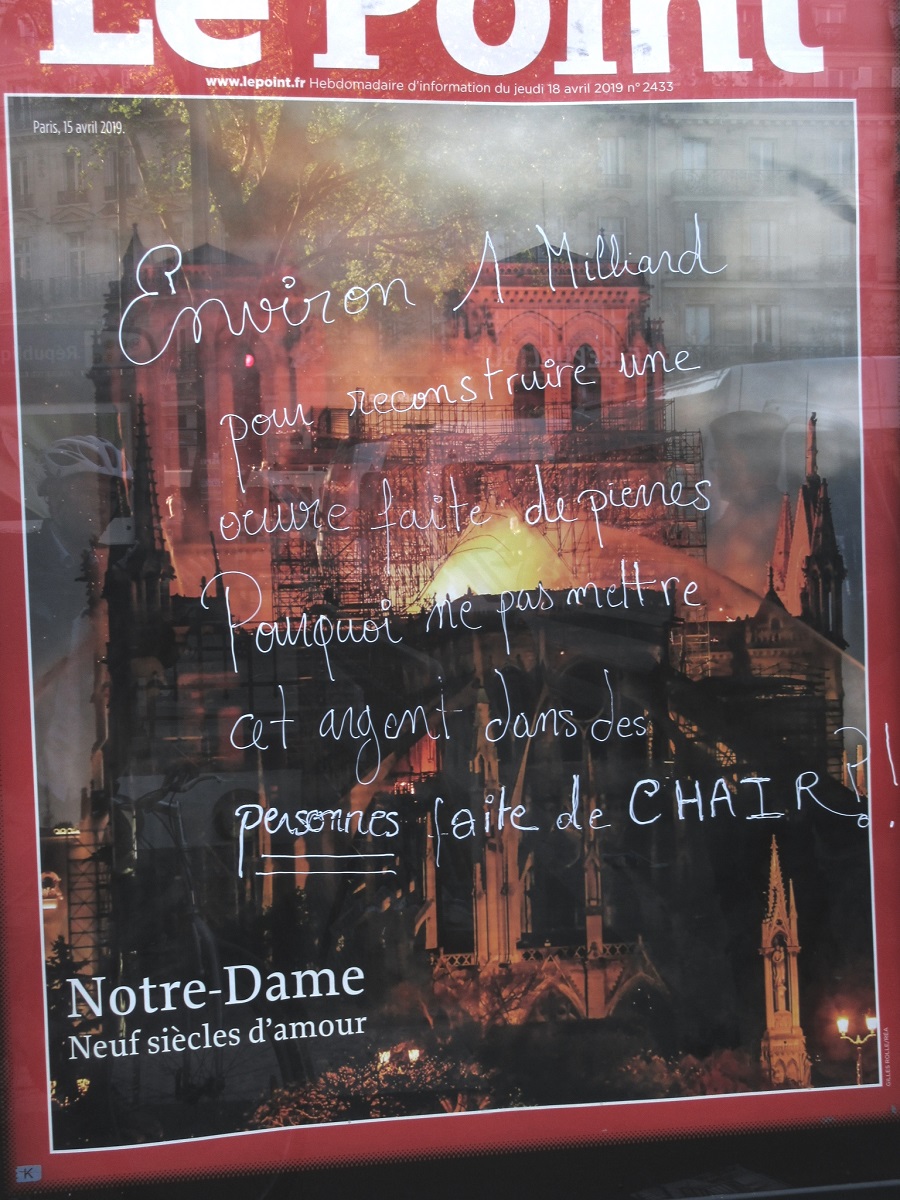 Le Point
www.lepoint.fr Hebdomadaire d'information du jeudi 18 avril 2019 n° 2433
Paris, 15 avril 2019.
Environ 1 Milliard
pour reconstruire une
oeuvre faite de pierres
Pourquoi ne pas mettre
cet argent dans des
personnes faite de CHAIR?!
Notre-Dame
Neuf siècles d'amour
GILLES ROLLE/RÉA
K